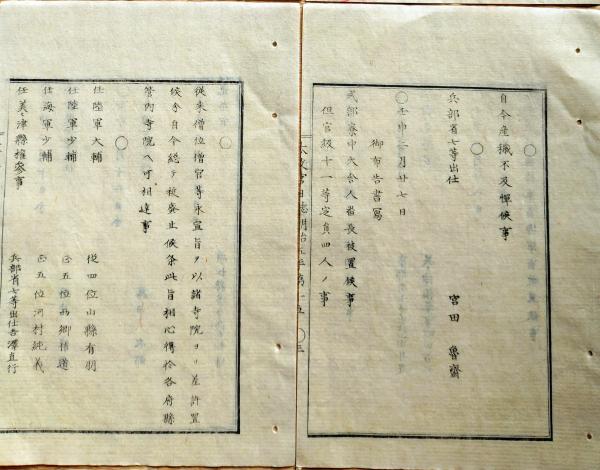 自今産穢不及憚候事
〇
兵部省七等出仕
宮田 魯齋
〇壬申二月廿七日
御布告書寫
式部寮中大舎人番長被置候事
但官級十一等定員四人ノ事
太政官日誌明治五年第十五
従来僧位僧官等永宣旨ヲ以諸寺院ヨリ差許置
候分自今総テ被廃止候条此旨相心得於各府縣
管内寺院ヘ可相達事
〇
任陸軍大輔
従四位山縣有朋
任陸軍少輔
正五位西郷従道
任海軍少輔
正五位河村純義
任美々津縣権参事
兵部省七等出仕吉澤直行